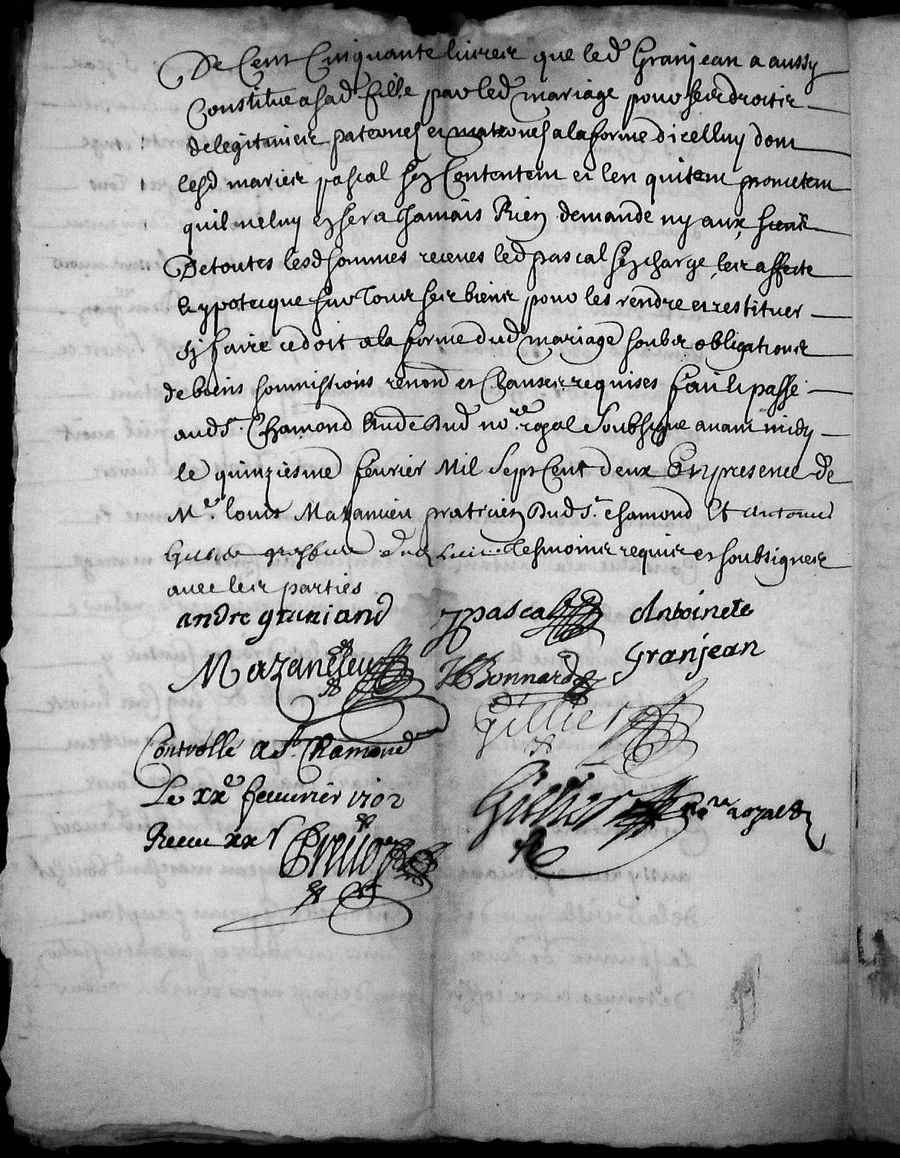 De Cent Cinquante livres que led Granjean a aussy
Constitue a sad fille par led mariage pour ses droitz
de legitimes paternes et maternes a la forme dicelluy dont
lesd maries pascal se Contentent et len quitent prometent
quil ne luy en sera Jhamais Rien demande ny aux siens
De toutes lesd sommes receues led pascal sen charge les affecte
hypoteque sur tous ses biens pour les rendre et restituer
sy faire ce doit a la forme dud mariage soubz obligations
de biens sommissions renond et Clauses requises fait et passe
aud St. Chamond Nore royal Soubsigne avant midy
le quinziesme fevrier Mil Sept Cent deux En presence de
Me. louis Mazanieu praticien dud St. chamond Et Antoine
tesmoins requis et soubsignes
avec les parties
andre graniand pascal Antoinete
Mazanieu Bonnard Granjean
Gillier
Controlle a St. Chamond
Le xxe feuvrier 1702
Receu xx s Gillier nore royal